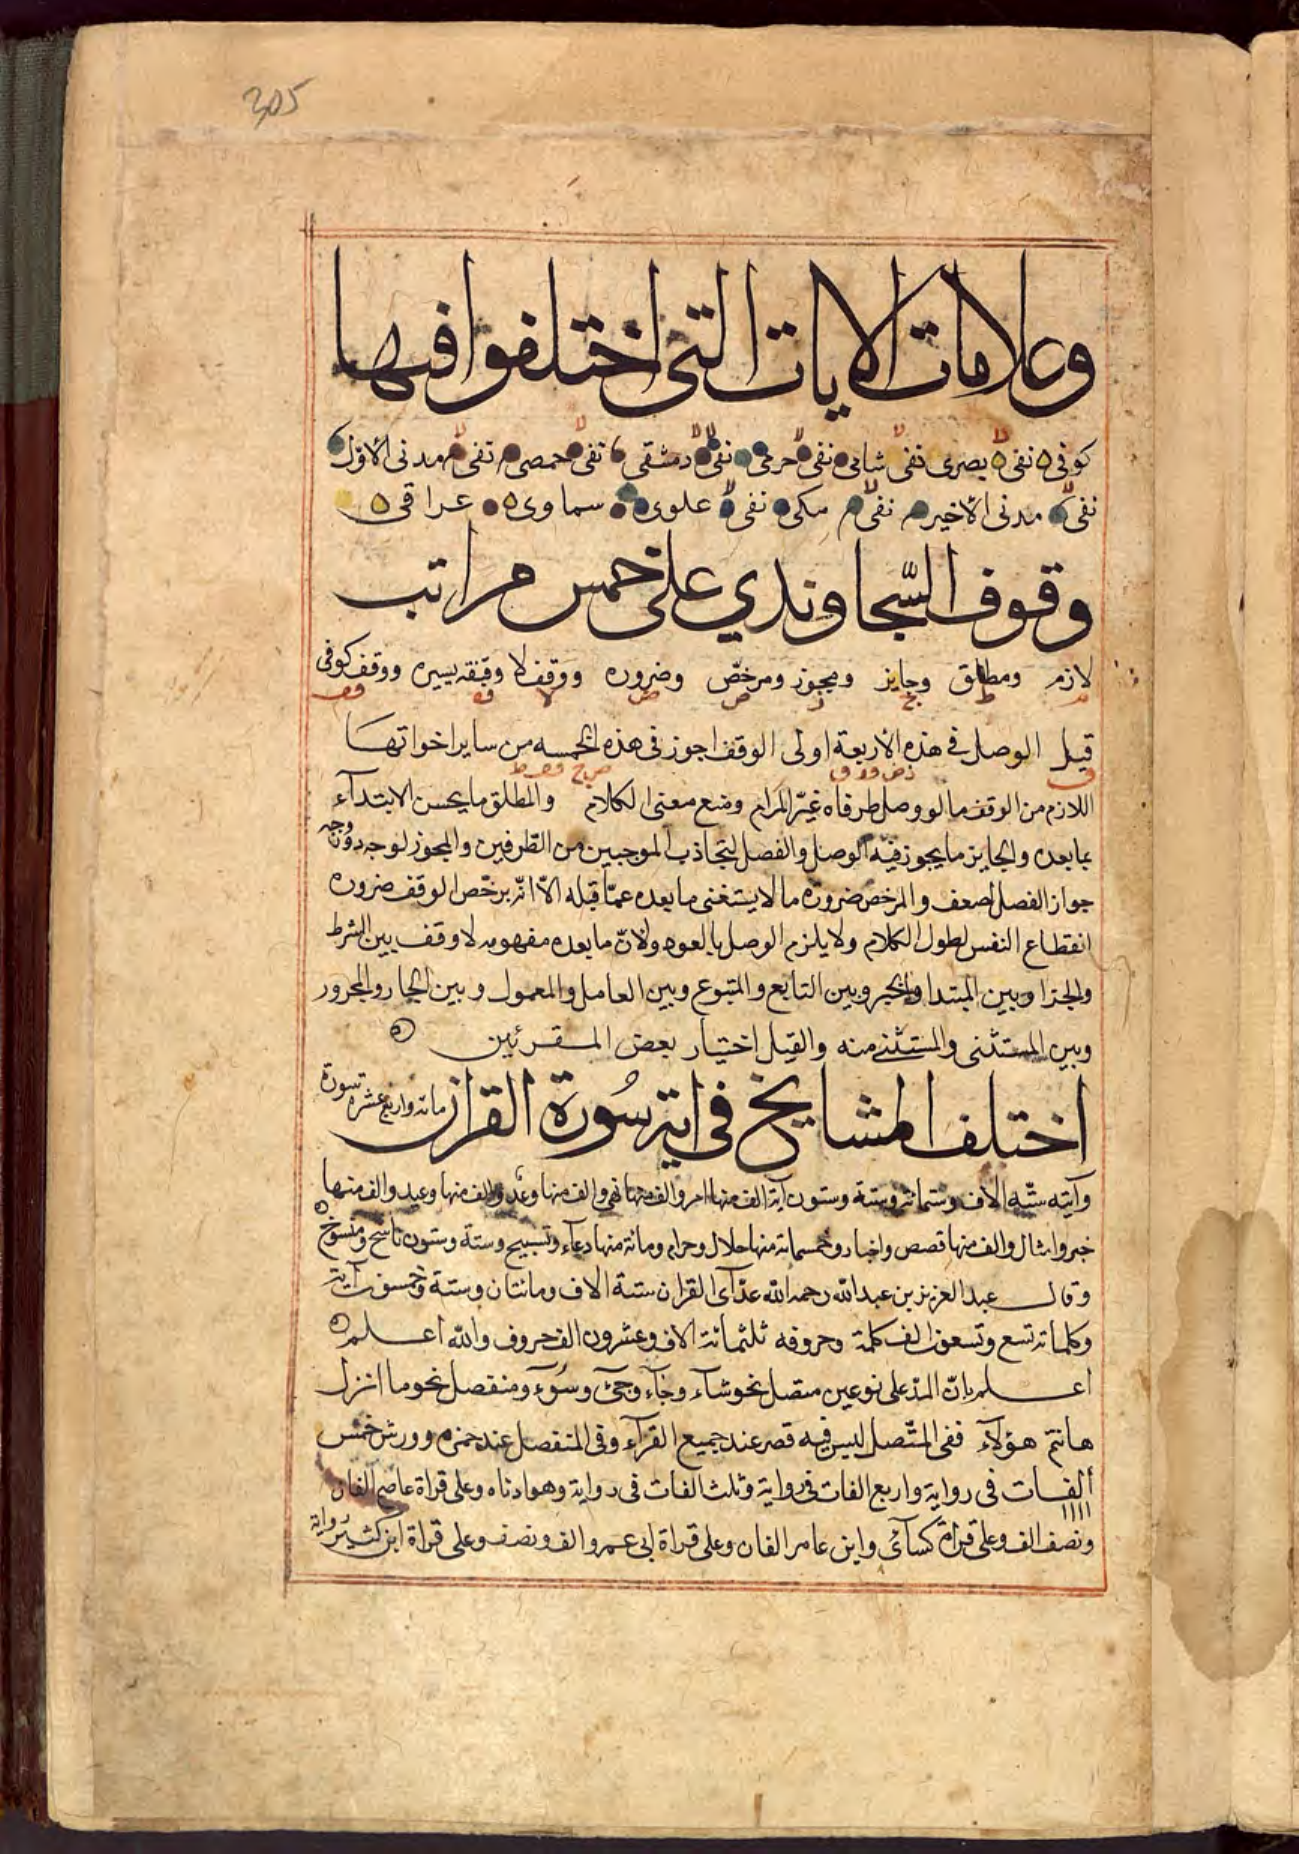 305
وعلامات الايات التى اختلفوا فيها
كوفى نفى بصرى نفى شامى نفى حرمى نفى دمشقى نفى حمصى نفى مدنى الاول
نفى مدنى الاخير نفى مكى نفى علوى سماوى عراقى
وقوف السّجاوندي على خمس مراتب
لازم ومطلق وجايز ومجوز ومرخّص وضروره ووقف لا وقفه يسيره ووقف كوفى
م ط ج ز ص ض لا
قيل الوصل فى هذه الأربعة اولى الوقف اجوز فى هذه الخمسه من ساير اخواتها
اللازم من الوقف ما لو وصل طرفاه غيّر المرام وضع معنى الكلام والمطلق ما يحسن الابتدآء
بما بعده والجايز ما يجوز فيه الوصل والفصل لتجاذب الموجبين من الطرفين والمجوز لوجه دون وجه
جواز الفصل لضعف والمرخص ضرورة ما لا يستغنى ما بعده عمّا قبله الاّ انّه يرخّص الوقف ضروره
انقطاع النفس لطول الكلام ولا يلزم الوصل بالعود ولانّ ما بعده مفهومه لا وقف بين الشرط
والجزا وبين المبتدا والخبر وبين التابع والمتبوع وبين العامل والمعمول وبين الجار والمجرور
وبين المستثنى والمستثنى منه والقيل اختيار بعض المقرئين
اختلف المشايخ فى اية سُورة القران مائة واربع عشره سورة
وآيته ستّه الاف وستمائة وستة وستون آية الف منها امر والف منها نهى والف منها وعد والف منها وعيد والف منها
خبر وامثال والف منها قصص واخبار وخمسمائة منها حلال وحرام ومائة منها دعآء وتسبيح وستة وستون ناسخ ومنسوخ
وقال عبد العزيز بن عبد الله رحمه الله عدّ آى القران ستة الاف ومائتان وستة وخمسون آية
وكلماته تسع وتسعون الف كلمة وحروفه ثلثمائة الاف وعشرون الف حروف والله اعلم
اعلم بانّ المدّ على نوعين متصل نحو شآء وجآء وجئ وسُوء ومنفصل نحو ما انزل
هانتم هؤلآء ففى المتّصل ليس فيه قصر عند جميع القرآء وفى المنفصل عند حمزه وورش خمس
ألفات فى رواية واربع الفات فى رواية وثلث الفات فى رواية وهو ادناه وعلى قراة عاصم الفان
ونصف الف وعلى قراة كسآئ وابن عامر الفان وعلى قراة ابى عمرو الف ونصف وعلى قراة ابن كثير رواية